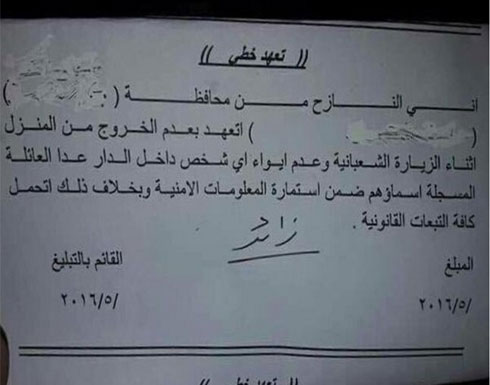 (( تعهد خطي ))
انـي النـازح مـن محافظـة (
) اتعهد بعدم الخروج من المنزل
اثناء الزيارة الشعبانية وعدم ايواء اي شخص داخل الدار عدا العائلة
المسجلة اسماؤهم ضمن استمارة المعلومات الامنية وبخلاف ذلك اتحمل
كافة التبعات القانونية .
المبلغ القائم بالتبليغ
/٢٠١٦/٥ /٢٠١٦/٥
(( تعهد خطي ))